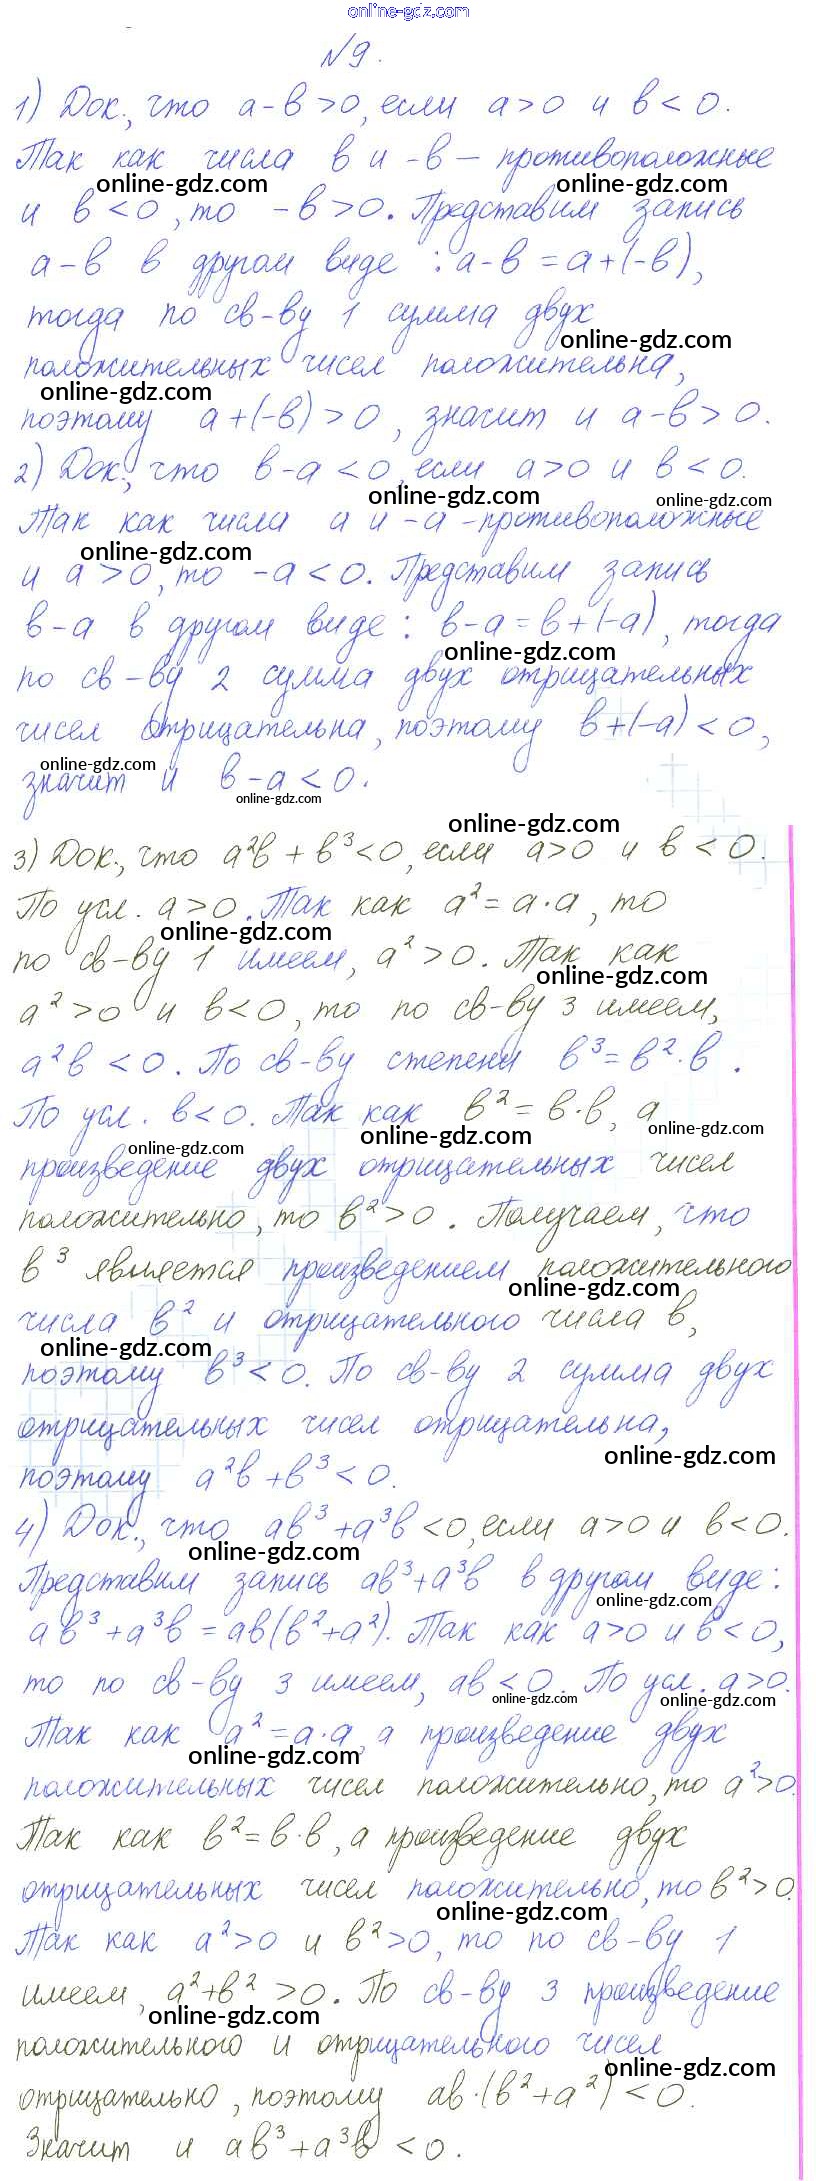 online-gdz.com
№9.
1) Док., что а-в>0, если а>0 и в<0.
Так как числа в и -в – противоположные
online-gdz.com online-gdz.com
и в<0, то -в>0. Представим запись
а-в в другом виде: а-в=а+(-в),
тогда по св-ву 1 сумма двух
online-gdz.com
положительных чисел положительна,
online-gdz.com
поэтому а+(-в)>0, значит и а-в>0.
2) Док., что в-а<0, если а>0 и в<0.
online-gdz.com online-gdz.com
Так как числа а и -а -противоположные
online-gdz.com
и а>0, то -а<0. Представим запись
в-а в другом виде: в-а=в+(-а), тогда
online-gdz.com
по св-ву 2 сумма двух отрицательных
чисел отрицательна, поэтому в+(-а)<0,
online-gdz.com
значит и в-а<0.
online-gdz.com
online-gdz.com
3) Док., что а²в+в³<0, если а>0 и в<0.
По усл. а>0. Так как а²=а·а, то
online-gdz.com
по св-ву 1 имеем, а²>0. Так как
online-gdz.com
а²>0 и в<0, то по св-ву 3 имеем,
а²в<0. По св-ву степени в³=в²·в.
По усл. в<0. Так как в²=в·в, а
online-gdz.com online-gdz.com online-gdz.com
произведение двух отрицательных чисел
положительно, то в²>0. Получаем, что
в³ является произведением положительного
online-gdz.com
числа в² и отрицательного числа в,
online-gdz.com
поэтому в³<0. По св-ву 2 сумма двух
отрицательных чисел отрицательна,
online-gdz.com
поэтому а²в+в³<0.
4) Док., что ав³+а³в<0, если а>0 и в<0.
online-gdz.com
Представим запись ав³+а³в в другом виде:
online-gdz.com
ав³+а³в=ав(в²+а²). Так как а>0 и в<0,
то по св-ву 3 имеем, ав<0. По усл. а>0.
online-gdz.com online-gdz.com
Так как а²=а·а, а произведение двух
online-gdz.com
положительных чисел положительно, то а²>0.
Так как в²=в·в, а произведение двух
отрицательных чисел положительно, то в²>0.
online-gdz.com
Так как а²>0 и в²>0, то по св-ву 1
имеем, а²+в²>0. По св-ву 3 произведение
online-gdz.com
положительного и отрицательного чисел
online-gdz.com
отрицательно, поэтому ав·(в²+а²)<0.
Значит и ав³+а³в<0.